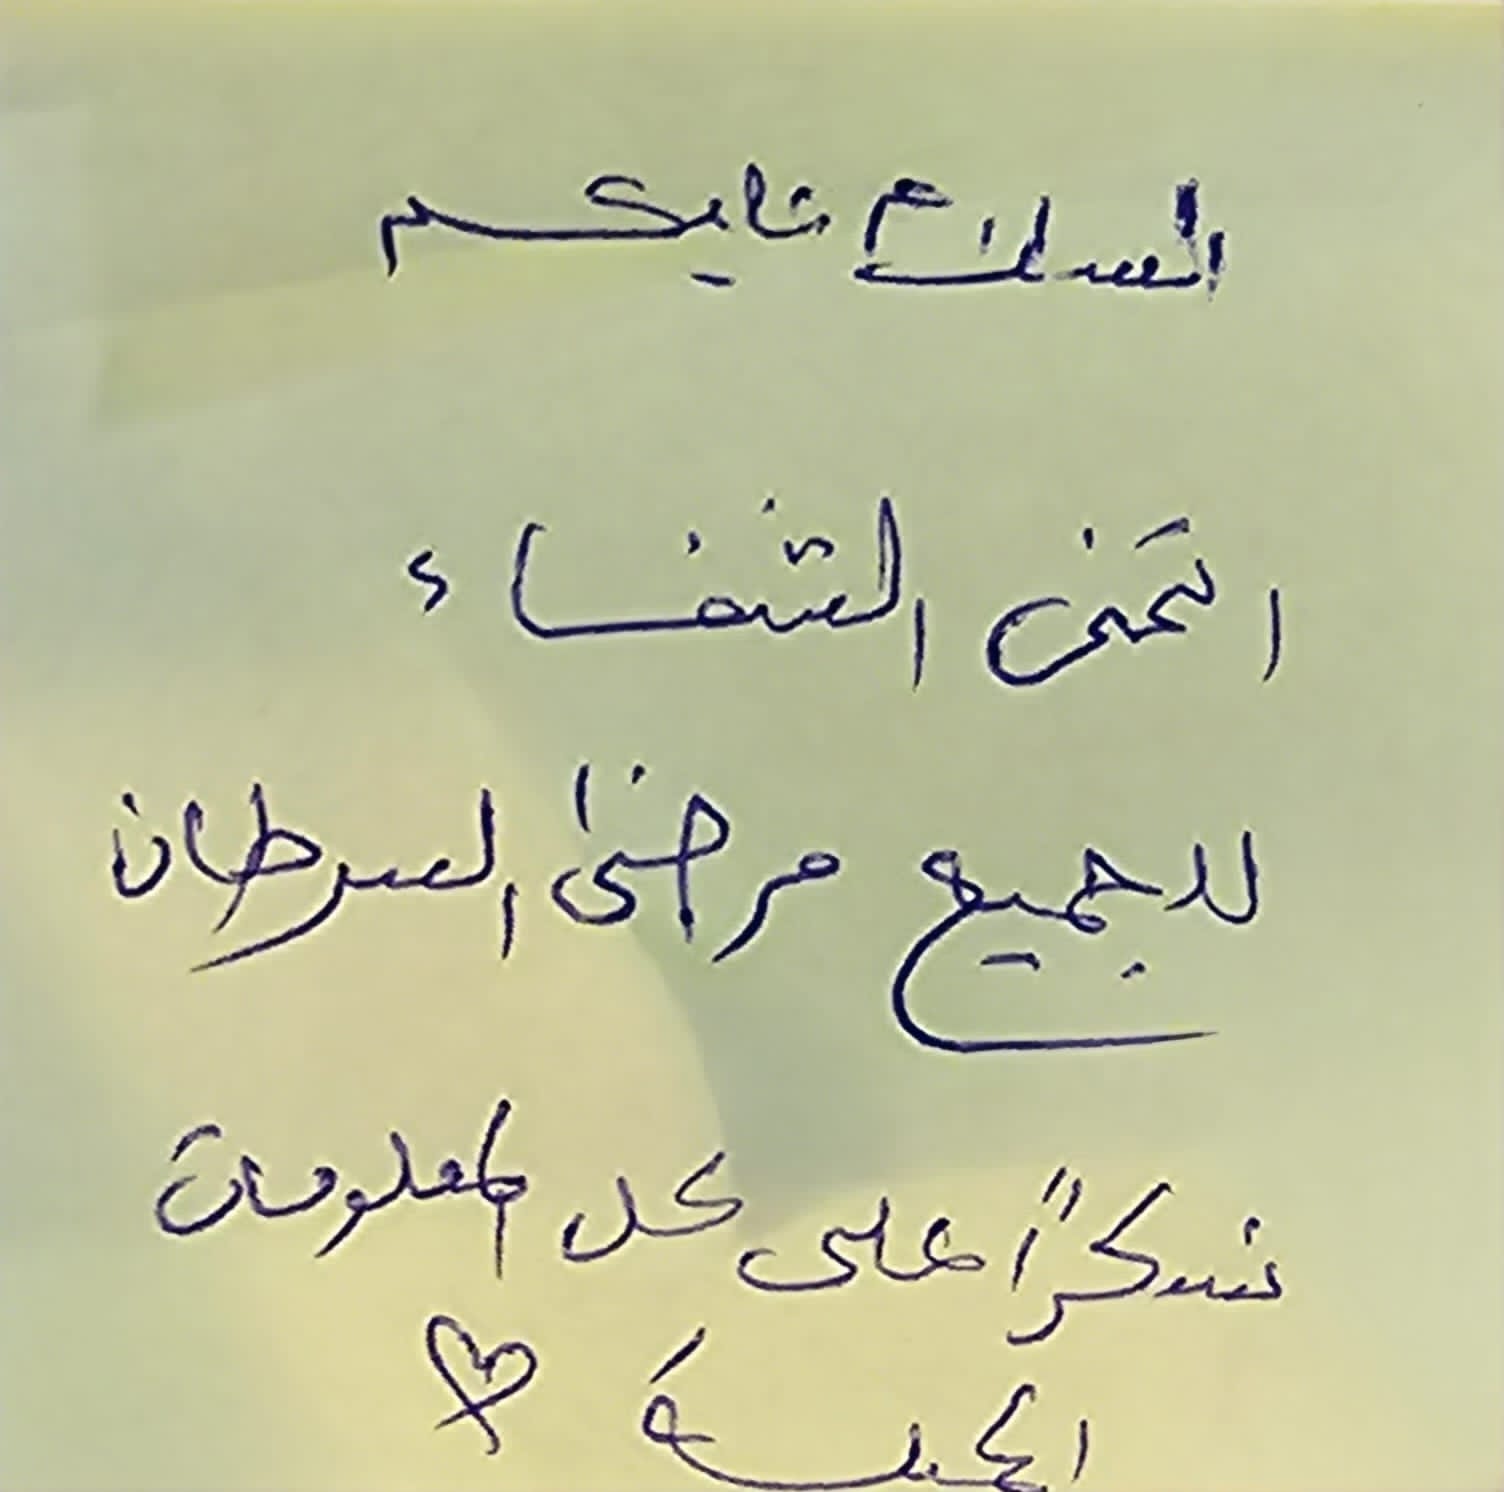 السلام عليكم
اتمنى الشفاء
للجميع مرضى السرطان
شكراً على كل المعلومات